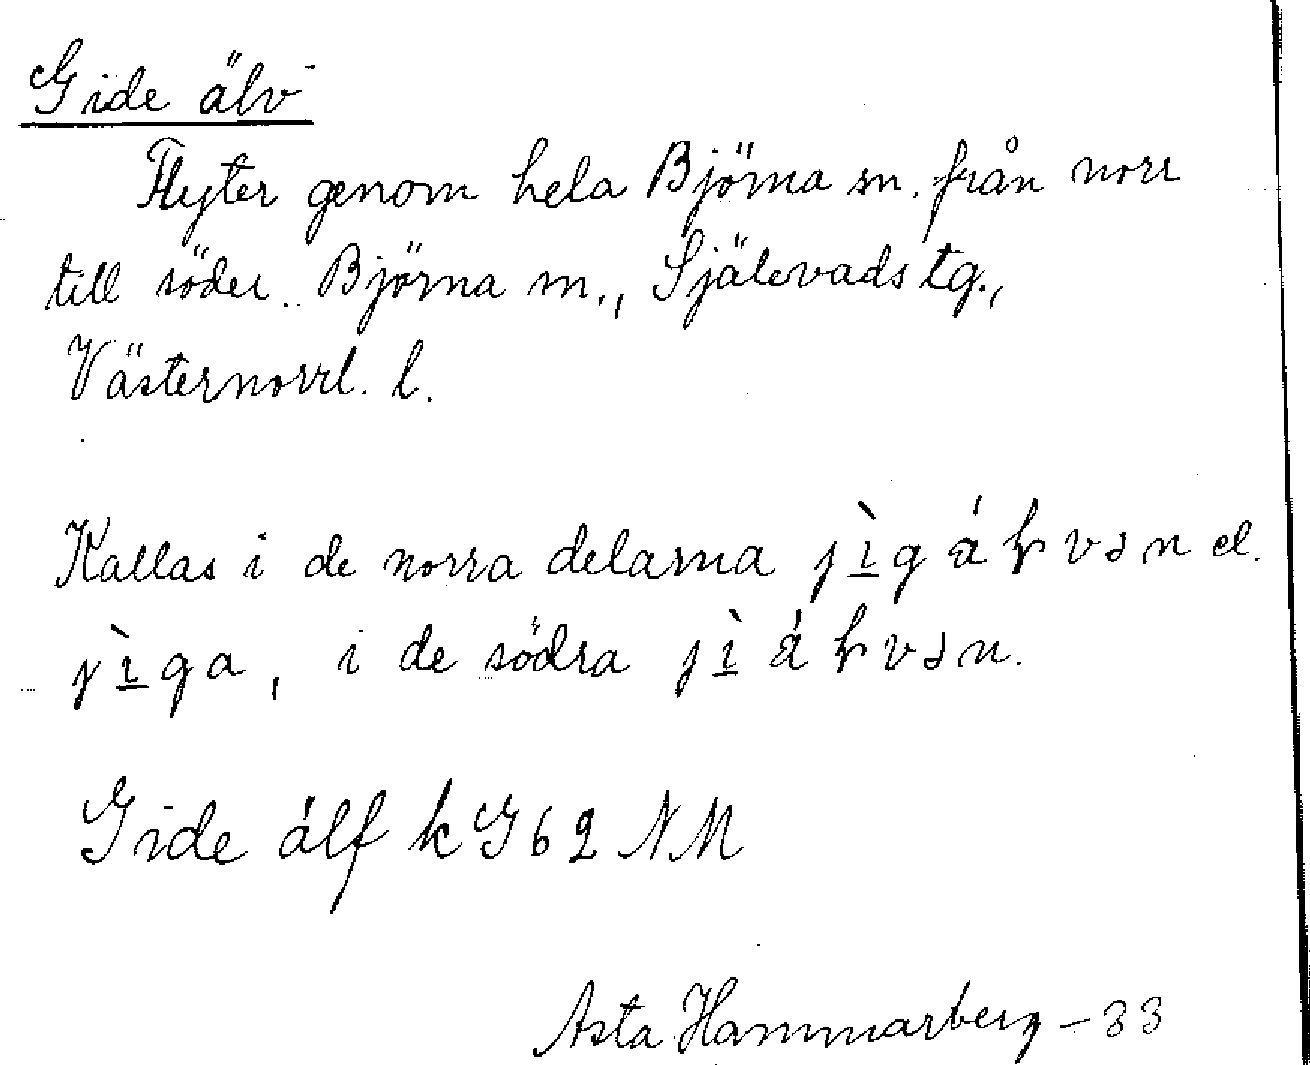 Gide älv
Flyter genom hela Björna sn. från norr
till söder. Björna sn., Själevads tg.,
Västernorrl. l.
Kallas i de norra delarna jı̱̀gáꞎvən el.
jı̱̀ga, i de södra jı̱̀áꞎvən.
Gide älf k G62 NM
Asta Hammarberg -33